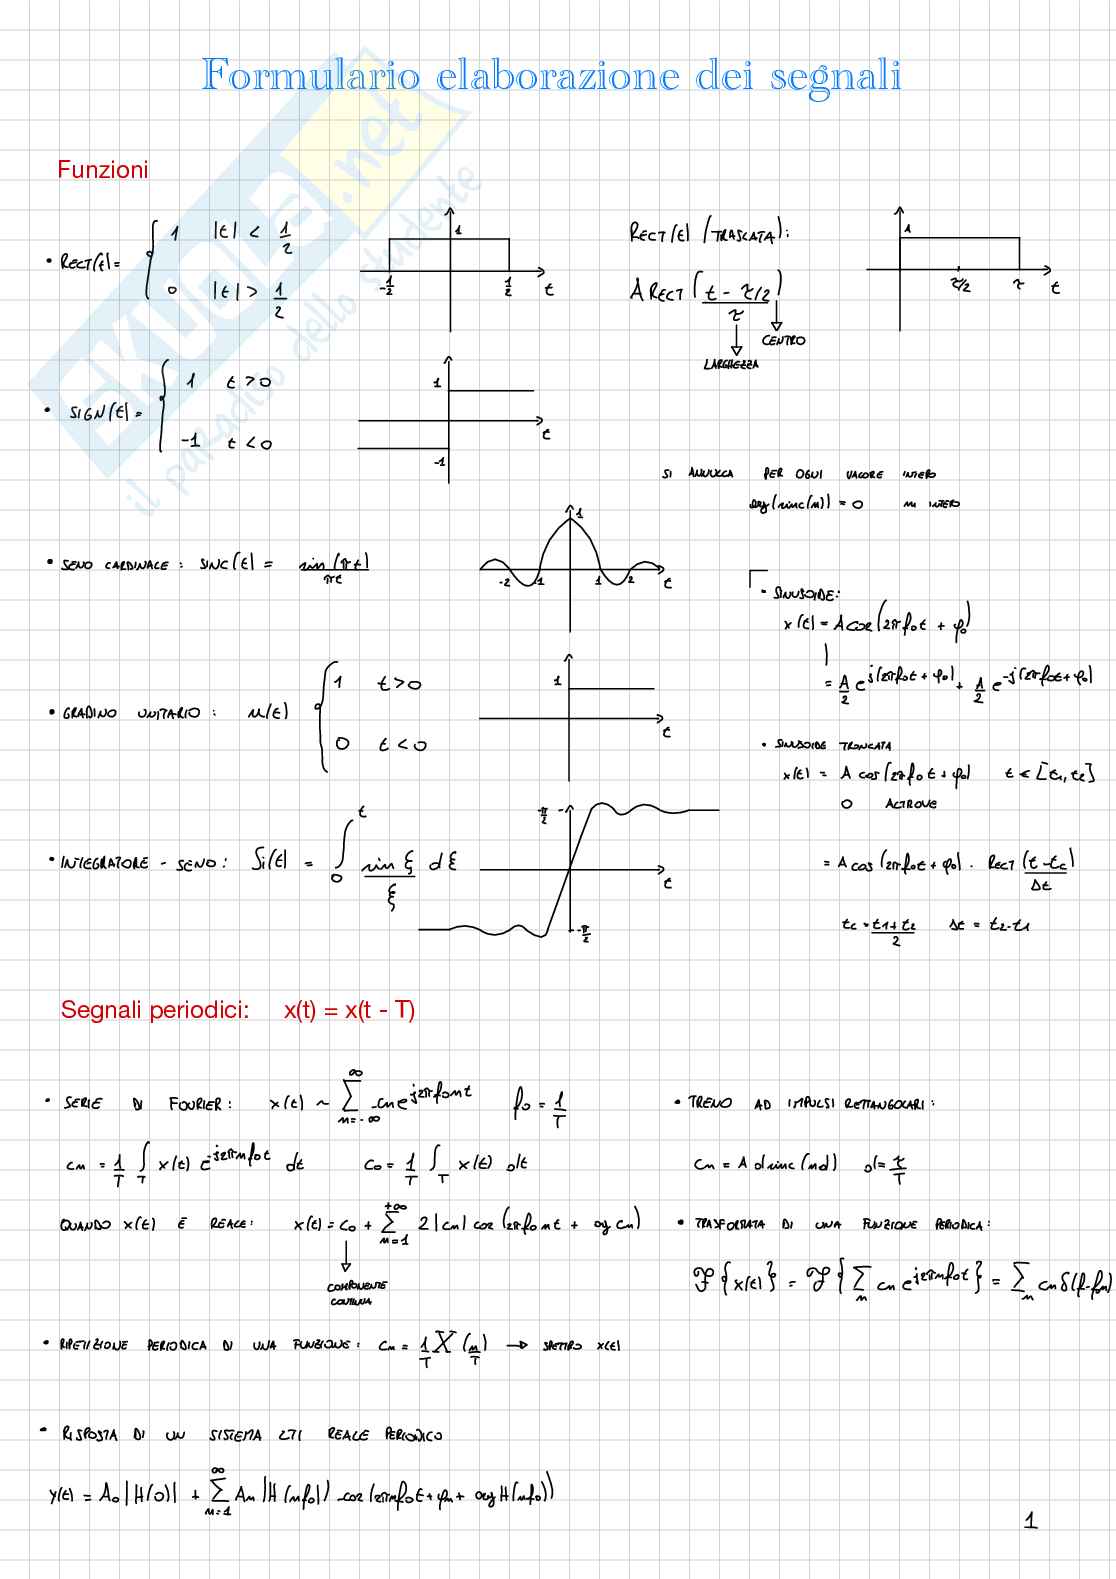 Formulario elaborazione dei segnali
SKUOLA.net
il paradiso dello studente
Funzioni
• RECT(t) = { 1 |t| < 1/2
0 |t| > 1/2
1
-1/2 1/2 t
RECT(t) (TRASLATA):
A RECT( (t - τ/2) / τ )
CENTRO
LARGHEZZA
1
τ/2 τ t
• SIGN(t) = { 1 t > 0
-1 t < 0
1
t
-1
SI ANNULLA PER OGNI VALORE INTERO
arg(sinc(n)) = 0 n INTERO
• SENO CARDINALE: SINC(t) = sin(πt) / πt
1
-2 -1 1 2 t
• SINUSOIDE:
x(t) = A cos(2πf₀t + φ₀)
= A/2 e^j(2πf₀t + φ₀) + A/2 e^-j(2πf₀t + φ₀)
• GRADINO UNITARIO: u(t) { 1 t > 0
0 t < 0
1
t
• SINUSOIDE TRONCATA
x(t) = A cos(2πf₀t + φ₀) t ∈ [t₁, t₂]
0 ALTROVE
= A cos(2πf₀t + φ₀) · RECT( (t - tc) / Δt )
tc = (t₁ + t₂) / 2 Δt = t₂ - t₁
• INTEGRATORE - SENO: Si(t) = ∫₀^t sin ξ / ξ dξ
π/2
t
-π/2
Segnali periodici: x(t) = x(t - T)
• SERIE DI FOURIER: x(t) ~ ∑_{n=-∞}^{∞} cn e^{j2πf₀nt} f₀ = 1/T
cn = 1/T ∫_T x(t) e^{-j2πnf₀t} dt c₀ = 1/T ∫_T x(t) dt
QUANDO x(t) È REALE: x(t) = c₀ + ∑_{n=1}^{+∞} 2|cn| cos(2πf₀nt + arg cn)
COMPONENTE
CONTINUA
• TRENO AD IMPULSI RETTANGOLARI:
cn = A d sinc(nd) d = τ/T
• TRASFORMATA DI UNA FUNZIONE PERIODICA:
ℱ{x(t)} = ℱ{∑_n cn e^{j2πnf₀t}} = ∑_n cn δ(f - f₀n)
• RIPETIZIONE PERIODICA DI UNA FUNZIONE: cn = 1/T X(n/T) → SPETTRO x(t)
• RISPOSTA DI UN SISTEMA LTI REALE PERIODICO
y(t) = A₀|H(0)| + ∑_{n=1}^{∞} An |H(nf₀)| cos(2πnf₀t + φn + arg H(nf₀))
1